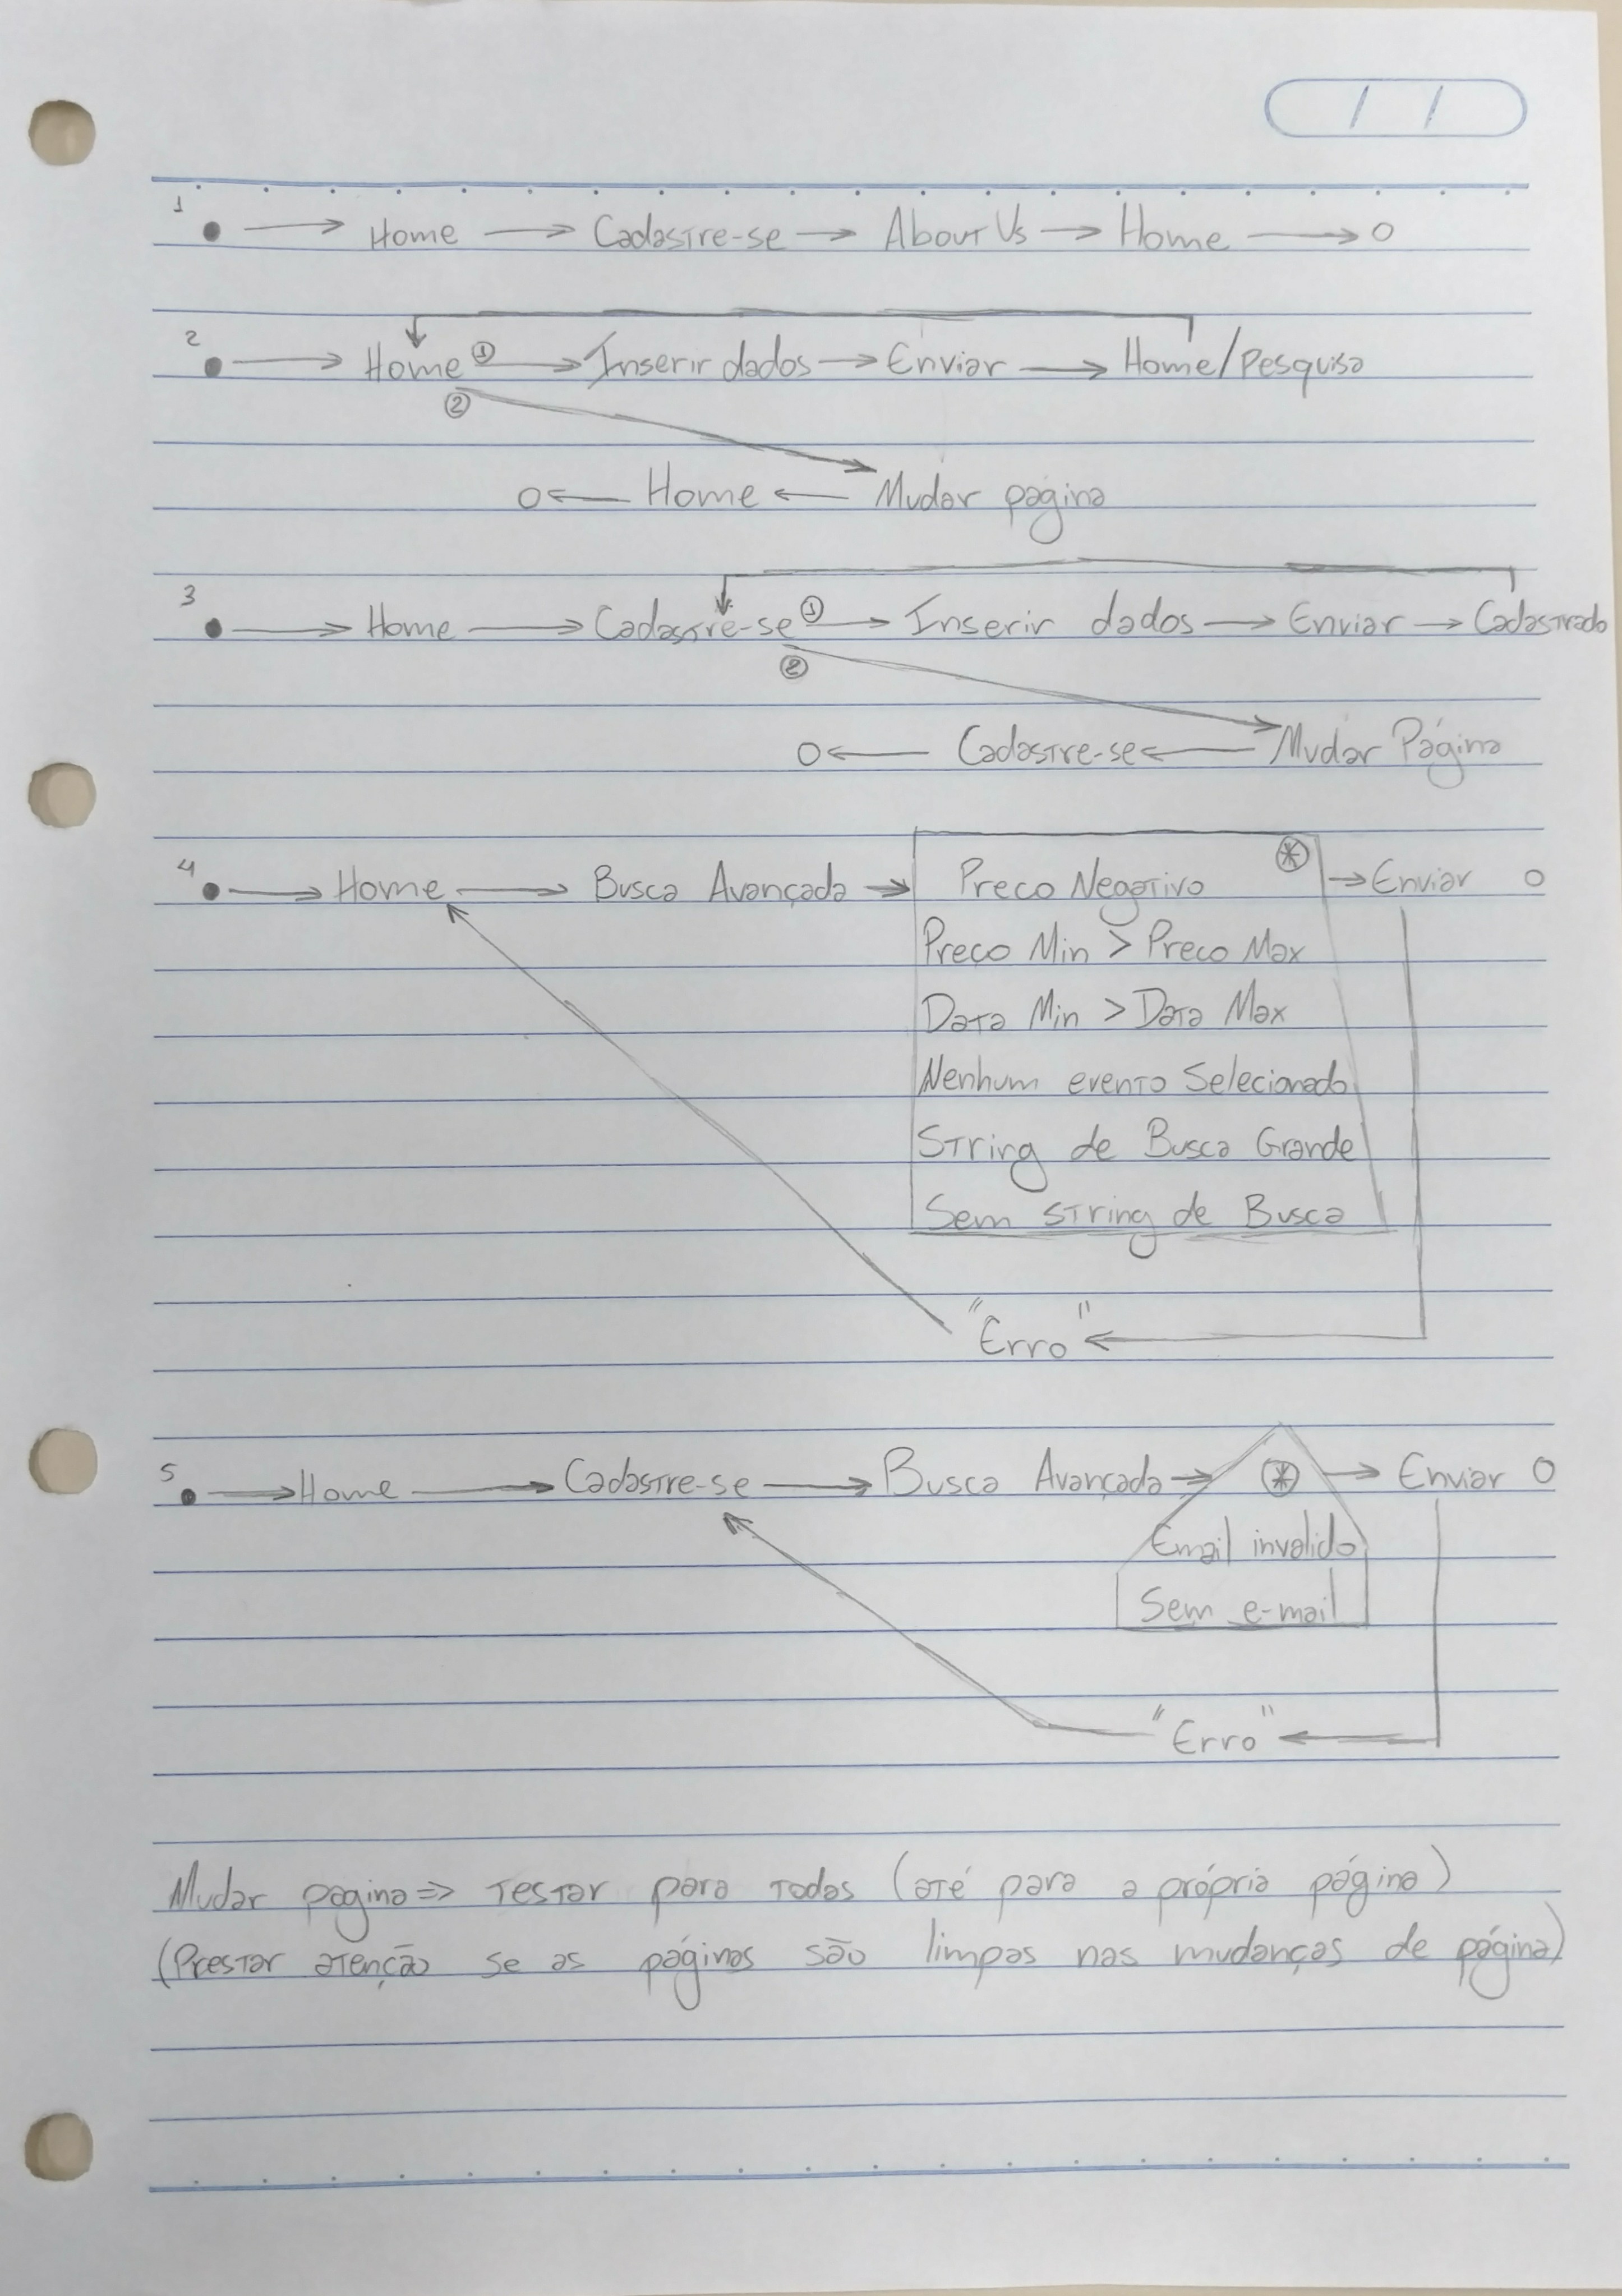 1 Home Cadastre-se About Us Home
2 Home ① Inserir dados Enviar Home/Pesquisa
②
Home Mudar pagina
3 Home Cadastre-se ① Inserir dados Enviar Cadastrado
②
Cadastre-se Mudar Página
4 Home Busca Avançada Preco Negativo * Enviar
Preço Min > Preco Max
Data Min > Data Max
Nenhum evento Selecionado
String de Busca Grande
Sem string de Busca
"Erro"
5 Home Cadastre-se Busca Avançada * Enviar
Email invalido
Sem e-mail
"Erro"
Mudar pagina => Testar para todas (até para a própria página)
(Prestar atenção se as páginas são limpas nas mudanças de página)